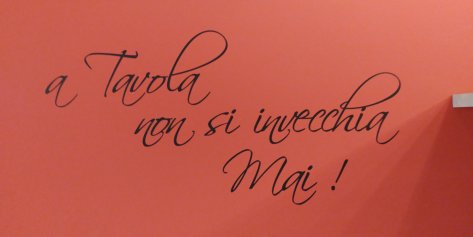 a Tavola
non si invecchia
Mai !